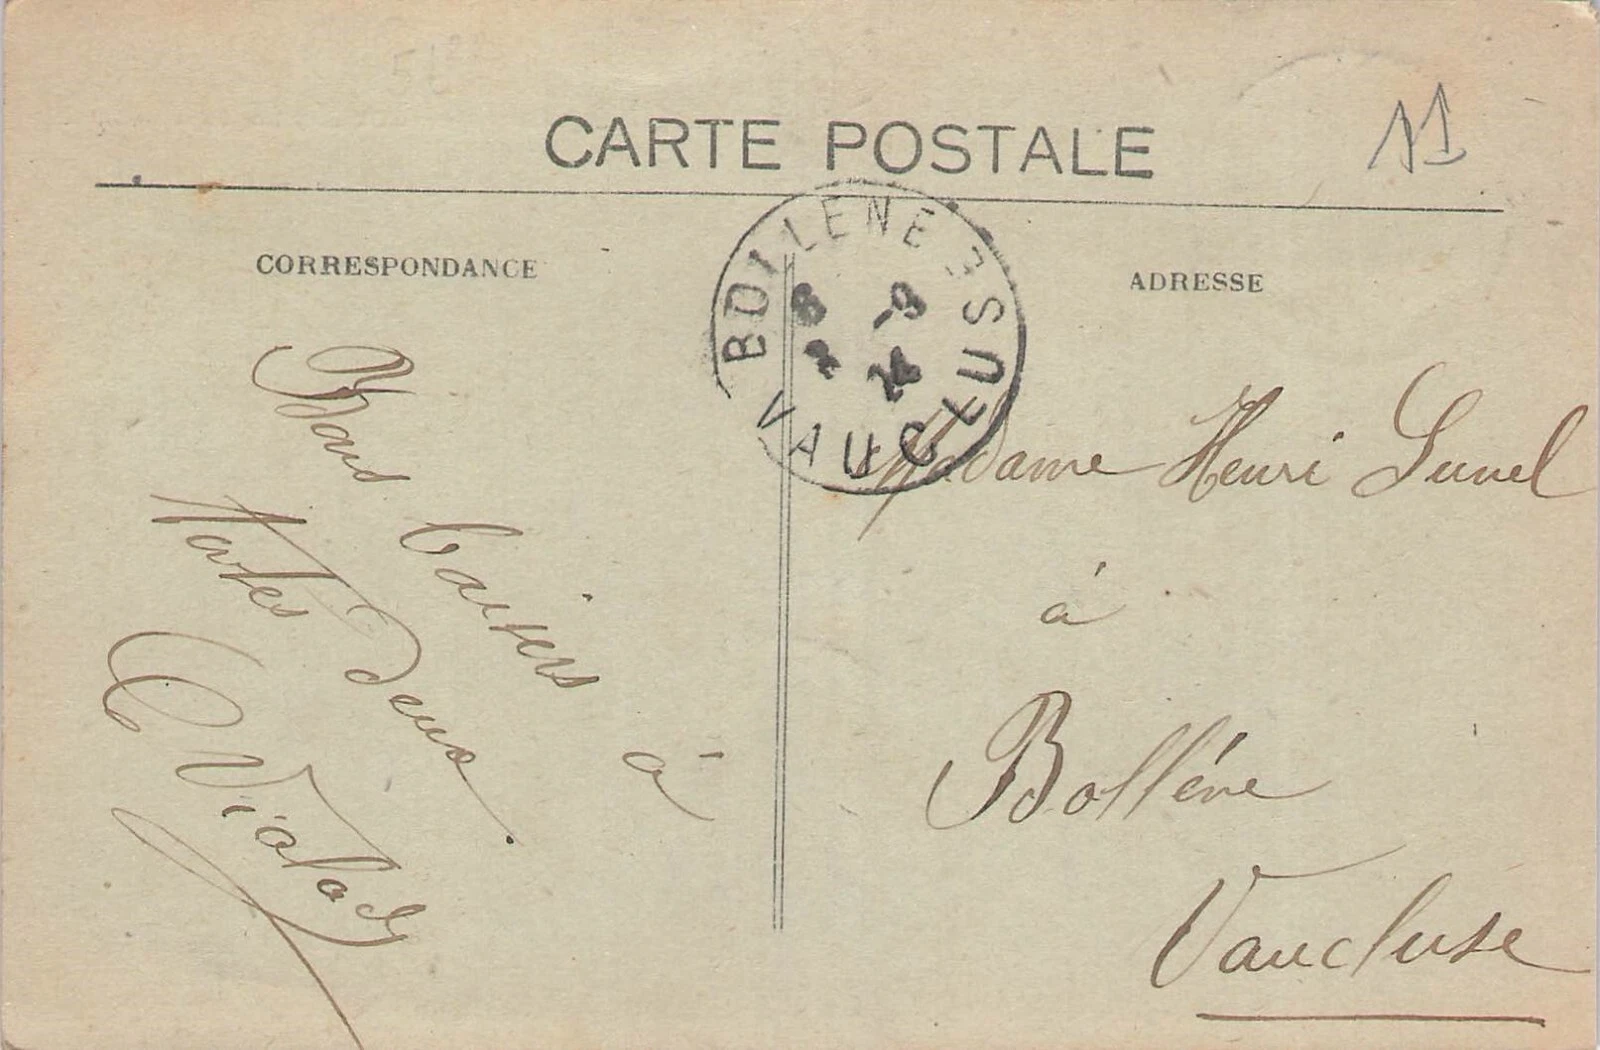 CARTE POSTALE
11
CORRESPONDANCE
ADRESSE
BOLLENE
VAUCLUSE
8 -9
Bons baisers à
toutes deux.
Madame Henri Lunel
à
Bollène
Vaucluse